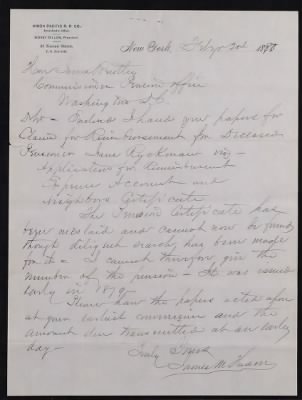 UNION PACIFIC R. R. CO.
SIDNEY DILLON, President
New York, Feby 2d 1890
Commissioner Pension Office
Washington D.C.
Dr Sir - Enclosed I hand you papers for
Claim for Reimbursement for Deceased
Pensioner - Jane Ryckman viz -
Application for Reimbursement
Expense Account and
Neighbors Certificate
The Pension Certificate has
been mislaid and cannot now be found
though diligent search has been made
for it - I cannot therefore give the
number of the pension - It was issued
early in 1879 -
Please have the papers acted upon
at your earliest convenience and the
amount due transmitted at an early
day -
Truly Yours
James M. Ham